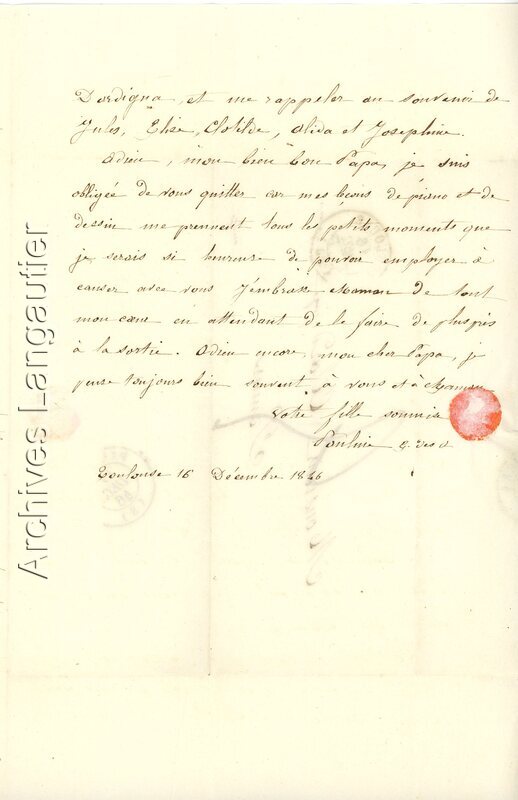 Dardigna, et me rappeler au souvenir de
Jules, Elise, Clotilde, Alida et Josephine.
Adieu, mon bien bon Papa, je suis
obligée de vous quitter car mes leçons de piano et de
dessin me prennent tous les petits moments que
je serais si heureuse de pouvoir employer à
causer avec vous J'embrasse Maman de tout
mon cœur en attendant de le faire de plus près
à la sortie. Adieu encore mon cher Papa, je
pense toujours bien souvent à vous et à Maman
Votre fille soumise
Pauline
Toulouse 16 Décembre 1846
Archives Langautier